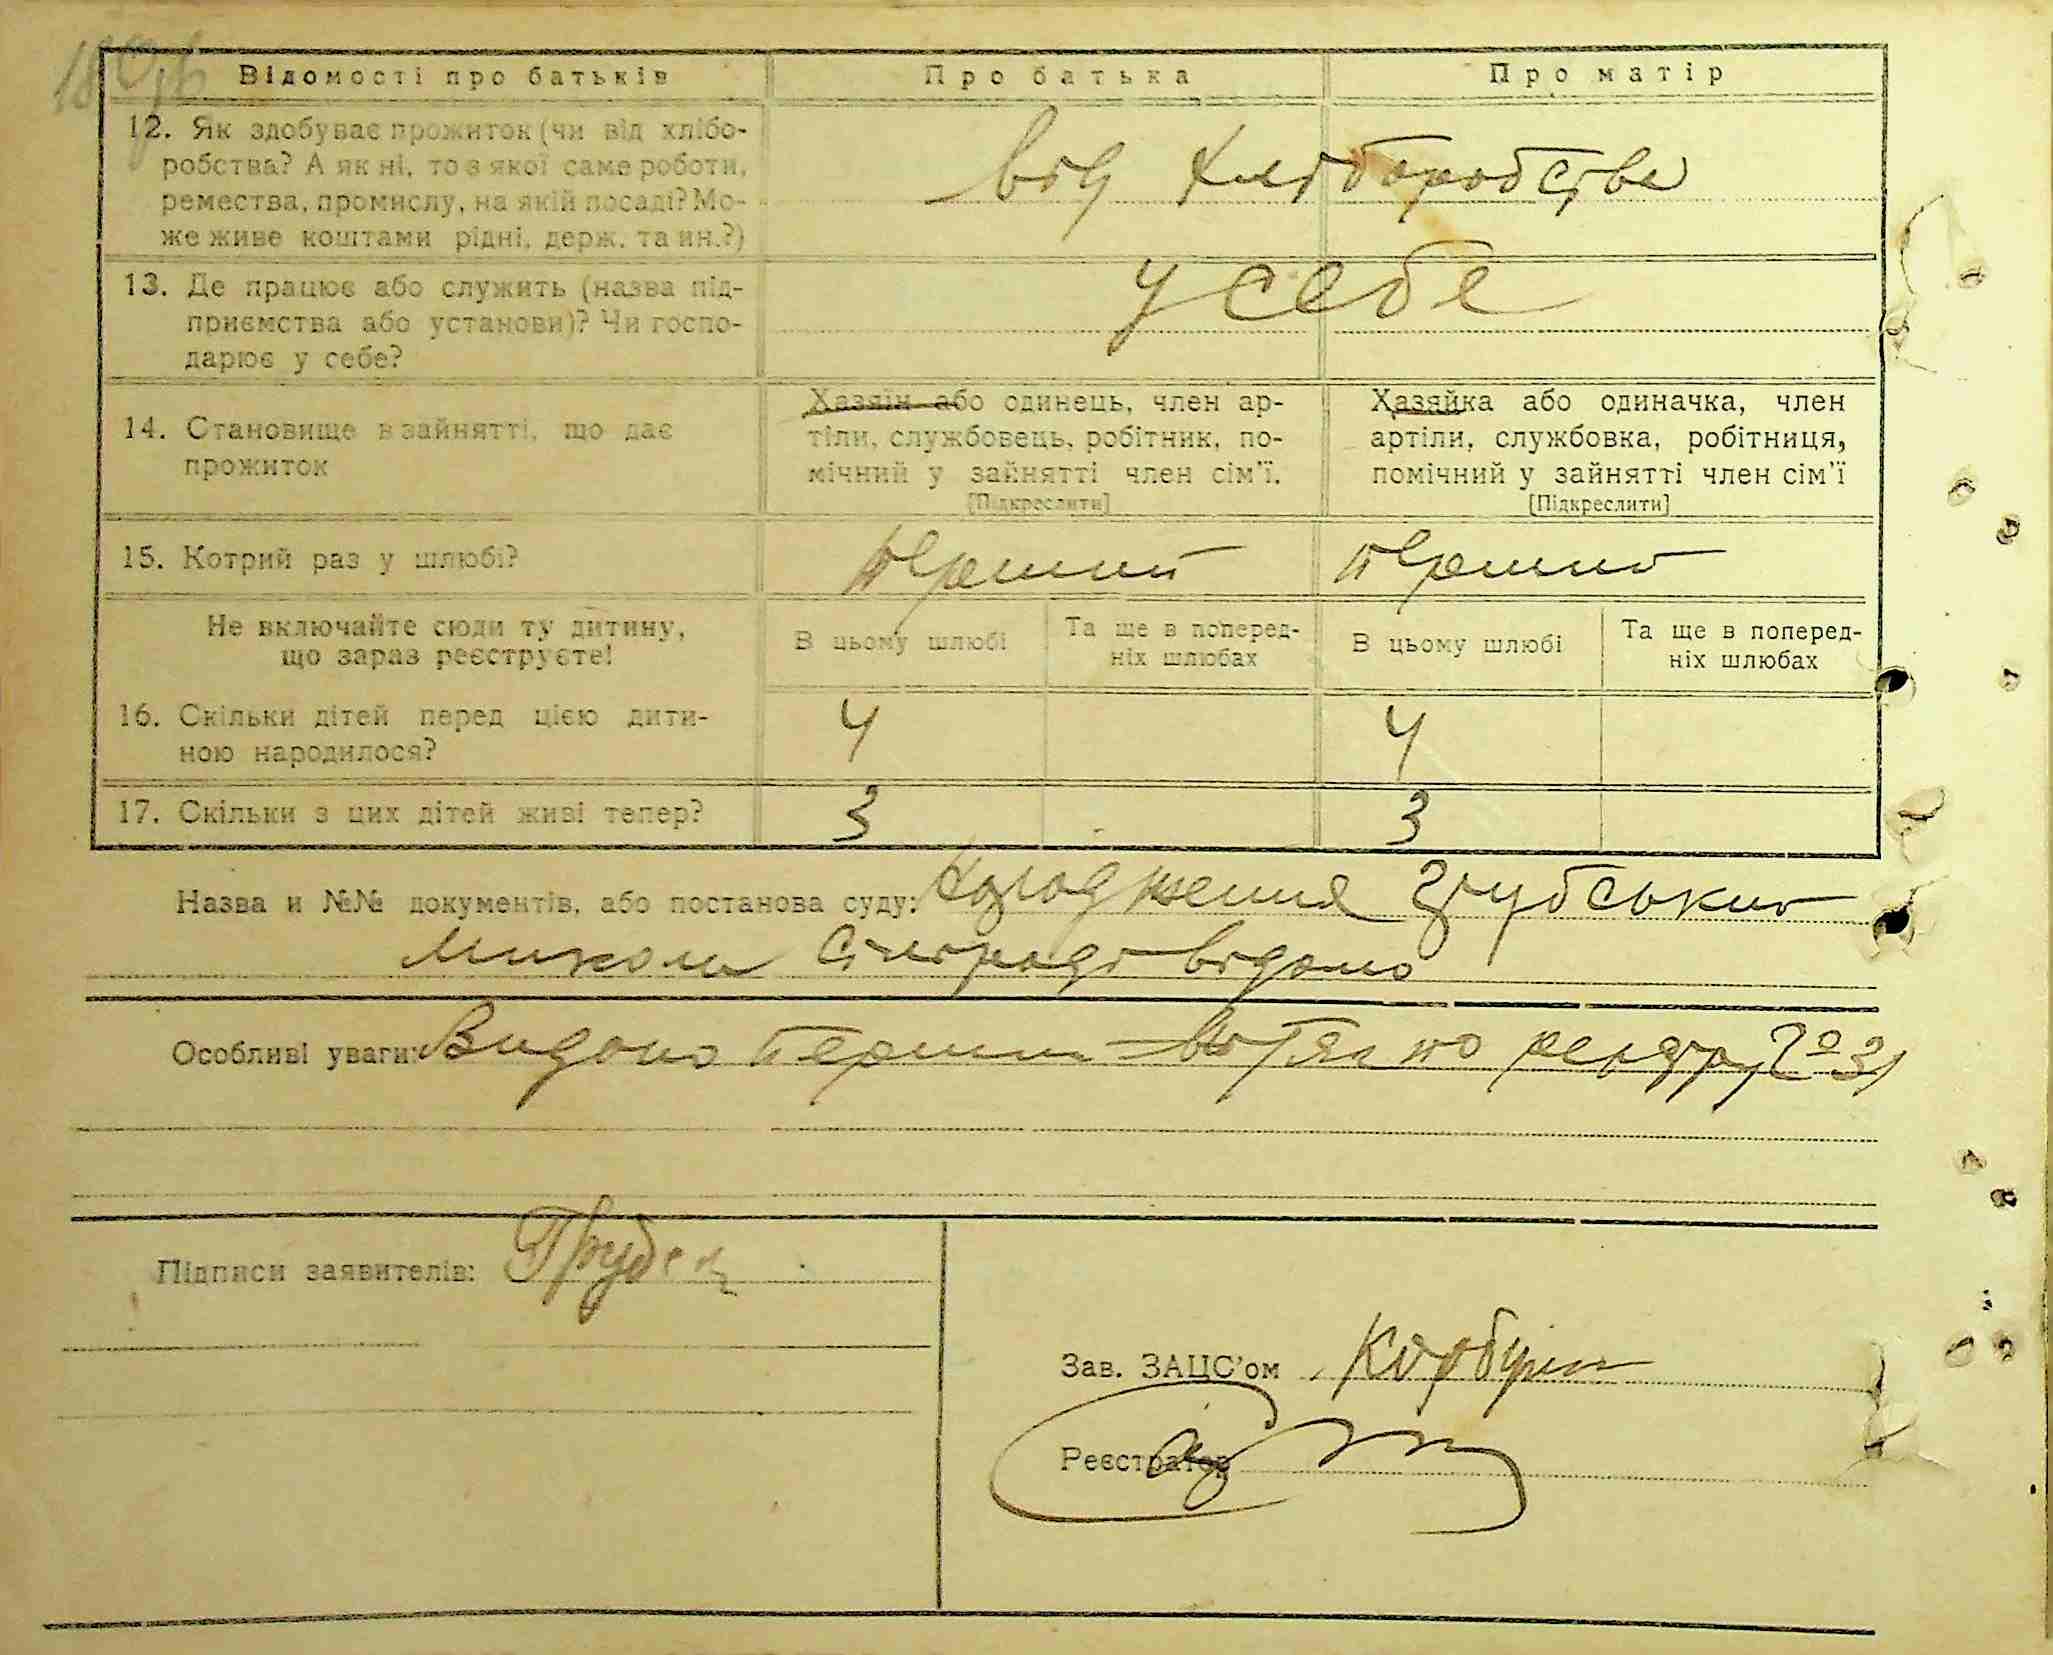 Відомості про батьків
Про батька
Про матір
12. Як здобуває прожиток (чи від хлібо-
робства? А як ні, то з якої саме роботи,
ремества, промислу, на якій посаді? Мо-
же живе коштами рідні, держ. та ин.?)
від хліборобства
13. Де працює або служить (назва під-
приємства або установи)? Чи госпо-
дарює у себе?
у себе
14. Становище в зайнятті, що дає
прожиток
Хазяїн або одинець, член ар-
тіли, службовець, робітник, по-
мічний у зайнятті член сім'ї.
[Підкреслити]
Хазяйка або одиначка, член
артіли, службовка, робітниця,
помічний у зайнятті член сім'ї
[Підкреслити]
15. Котрий раз у шлюбі?
перший
перший
Не включайте сюди ту дитину,
що зараз реєструєте!
В цьому шлюбі
Та ще в поперед-
ніх шлюбах
В цьому шлюбі
Та ще в поперед-
ніх шлюбах
16. Скільки дітей перед цією дити-
ною народилося?
4
4
17. Скільки з цих дітей живі тепер?
3
3
Назва и №№ документів, або постанова суду:
Миколи сільраді відомо
Особливі уваги: Видано перший витяг по 31
Підписи заявителів:
Зав. ЗАЦС'ом
Реєстратор